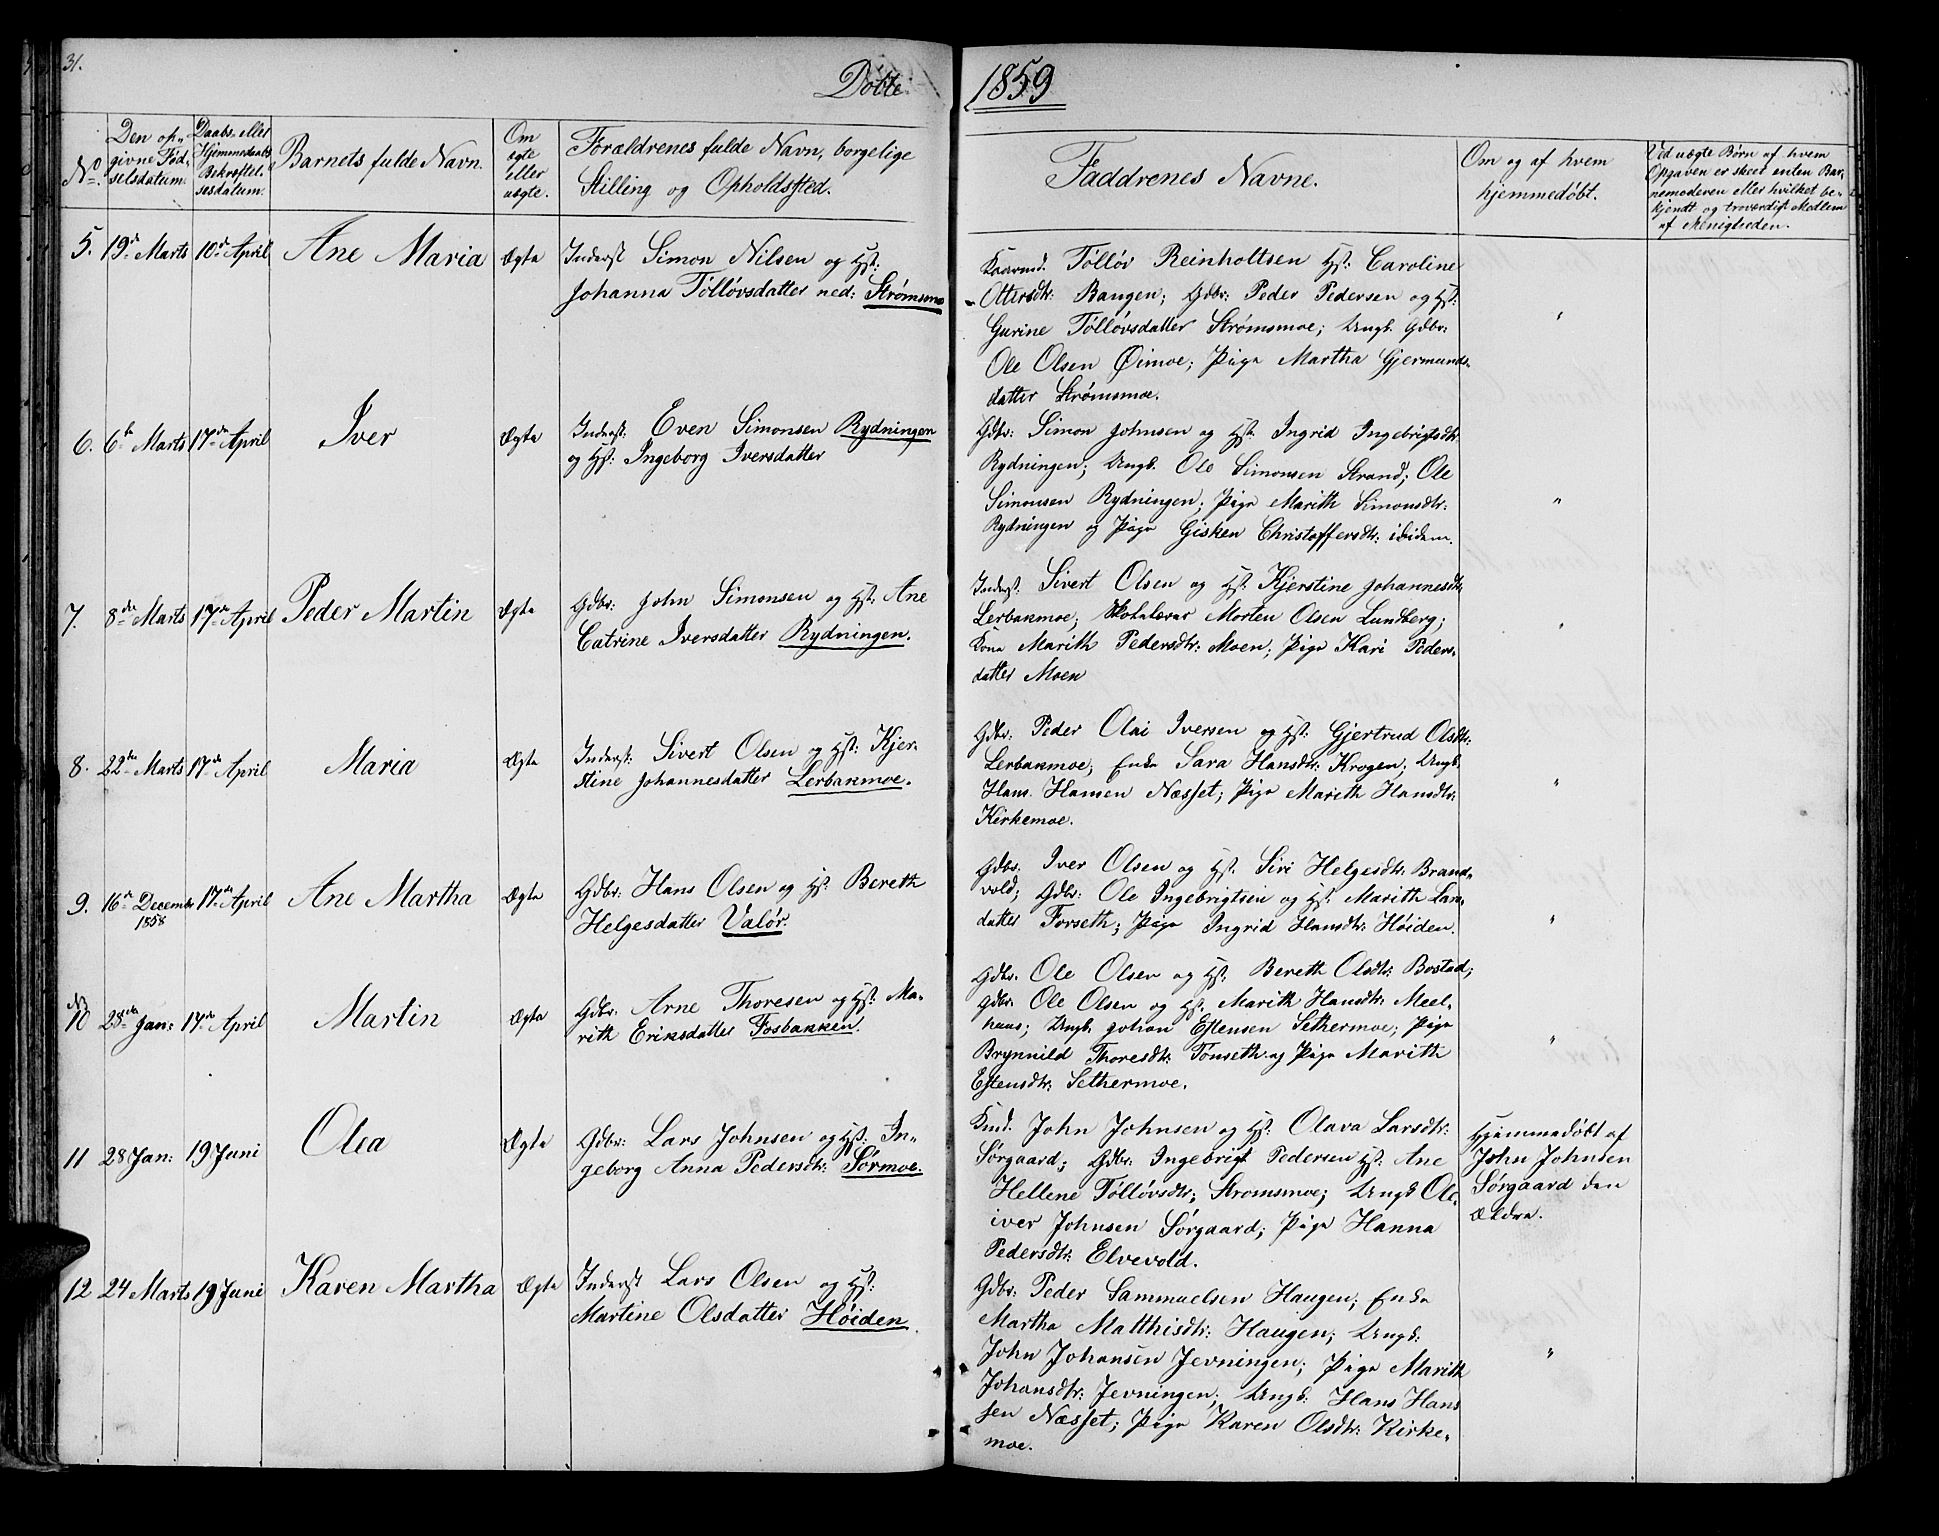 31.
Döbte
1859
No.
Den op-
givne Föd-
selsdatum.
Daabs- eller
Hjemmedaabs
Bekræftel-
sesdatum.
Barnets fulde Navn.
Om
ægte
eller
uægte.
Forældrenes fulde Navn, borgelige
Stilling og Opholdssted.
Faddrenes Navne.
Om og af hvem
hjemmedöbt.
Ved uægte Børn af hvem
Opgaven er skeet enten Bar-
nemoderen eller hvilket be-
kjendt og troværdigt Medlem
af Menigheden.
5. 19de Marts 10de April Ane Maria Ægte
Inderst Simon Nilsen og Hst:
Johanna Töllövsdatter ned: Strømsmo
Kaarmd. Töllöv Reinholtsen Hst: Caroline
Ottersdtr: Baugen; Gdbr: Peder Pedersen og Hst:
Gurine Töllövsdatter Strømsmoe; Ungk. Gdbr:
Ole Olsen Øimoe; Pige Martha Gjermunds-
datter Strömsmoe.
"
6. 6te Marts 17de April Iver Ægte
Inderst: Even Simonsen Rydningen
og Hst: Ingeborg Iversdatter
Gdbr: Simon Johnsen og Hst: Ingrid Ingebrigtsdtr:
Rydningen; Ungk. Ole Simonsen Strand; Ole
Simonsen Rydningen; Pige Marith Simonsdtr:
Rydningen og Pige Gisken Christoffersdtr: ibidem.
"
7. 8de Marts 17de April Peder Martin Ægte
Gdbr: John Simonsen og Hst: Ane
Catrine Iversdatter Rydningen.
Inderst. Sivert Olsen og Hst: Kjerstine Johannesdtr:
Lerbakmoe; Skolelærer Morten Olsen Lundberg;
Kone Marith Pedersdtr: Moen; Pige Kari Peders-
datter Moen
"
8. 22de Marts 17de April Maria Ægte
Inderst: Sivert Olsen og Hst: Kjer-
stine Johannesdatter Lerbakmoe.
Gdbr: Peder Olai Iversen og Hst: Gjertrud Olsdtr:
Lerbakmoe; Enke Sara Hansdtr: Krogen; Ungk.
Hans Hansen Næsset; Pige Marith Hansdtr:
Kirkemoe.
"
9. 16de December 17de April Ane Martha Ægte
1858
Gdbr: Hans Olsen og Hst: Bereth
Helgesdatter Valör.
Gdbr. Iver Olsen og Hst. Siri Helgesdtr: Brand-
vold; Gdbr: Ole Ingebrigtsen og Hst. Marith Lars-
datter Forseth; Pige Ingrid Hansdtr: Höiden.
"
No
10 28de Jan: 17de April Martin Ægte
Gdbr: Arne Thoresen og Hst. Ma-
rith Eriksdatter Fosbakken.
Gdbr. Ole Olsen og Hst. Bereth Olsdtr: Bostad;
Gdbr: Ole Olsen og Hst. Marith Hansdtr: Meel-
huus; Ungk. Johan Estensen Sethermoe; Pige
Brynnild Thoresdtr: Tonseth og Pige Marith
Estensdtr: Sethermoe.
"
11 28 Jan: 19 Juni Olea Ægte
Gdbr: Lars Johnsen og Hst: In-
geborg Anna Pedersdtr: Sørmoe.
Kmd. John Johnsen og Hst: Olava Larsdtr:
Sörgaard; Gdbr: Ingebrigt Pedersen Hst: Ane
Hellene Töllövsdtr; Stromsmoe; Ungk Ol-
iver Johnsen Sörgaard; Pige Hanna
Pedersdtr: Elvevold.
Hjemmedöbt af
John Johnsen
Sörgaard den
Ældre.
12 24 Marts 19 Juni Karen Martha Ægte
Inderst Lars Olsen og Hst:
Martine Olsdatter Höiden.
Gdbr: Peder Sammuelsen Haugen; Enke
Martha Matthisdtr: Haugen; Ungk:
John Johansen Jevningen; Pige Marith
Johansdtr: Jevningen; Ungk: Hans Han-
sen Næsset; Pige Karen Olsdtr: Kirke-
moe.
"